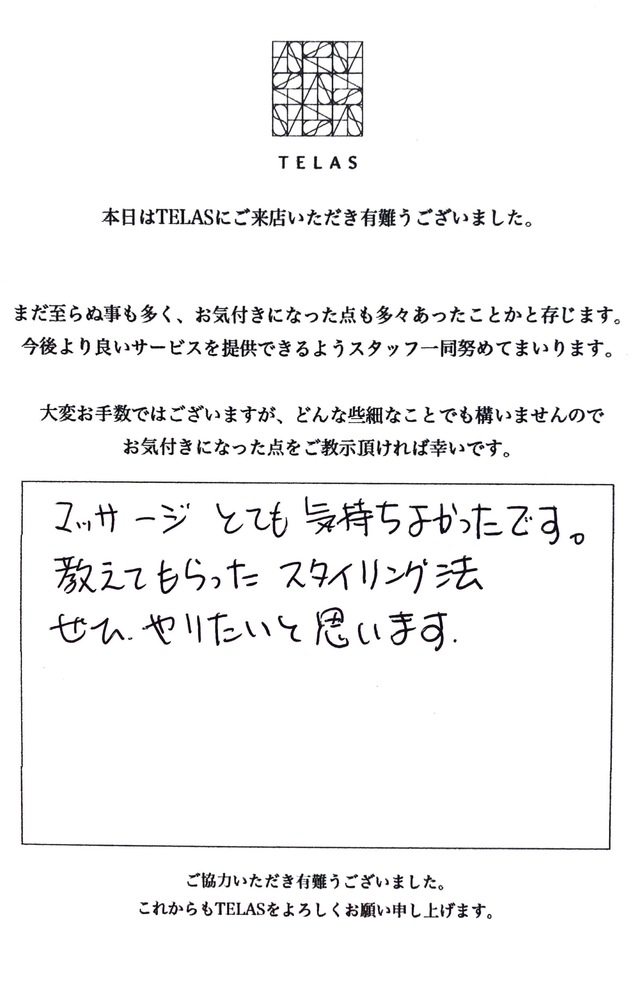 TELAS
本日はTELASにご来店いただき有難うございました。
まだ至らぬ事も多く、お気付きになった点も多々あったことかと存じます。
今後より良いサービスを提供できるようスタッフ一同努めてまいります。
大変お手数ではございますが、どんな些細なことでも構いませんので
お気付きになった点をご教示頂ければ幸いです。
マッサージ とても 気持ちよかったです。
教えてもらった スタイリング法
ぜひ やりたいと思います.
ご協力いただき有難うございました。
これからもTELASをよろしくお願い申し上げます。